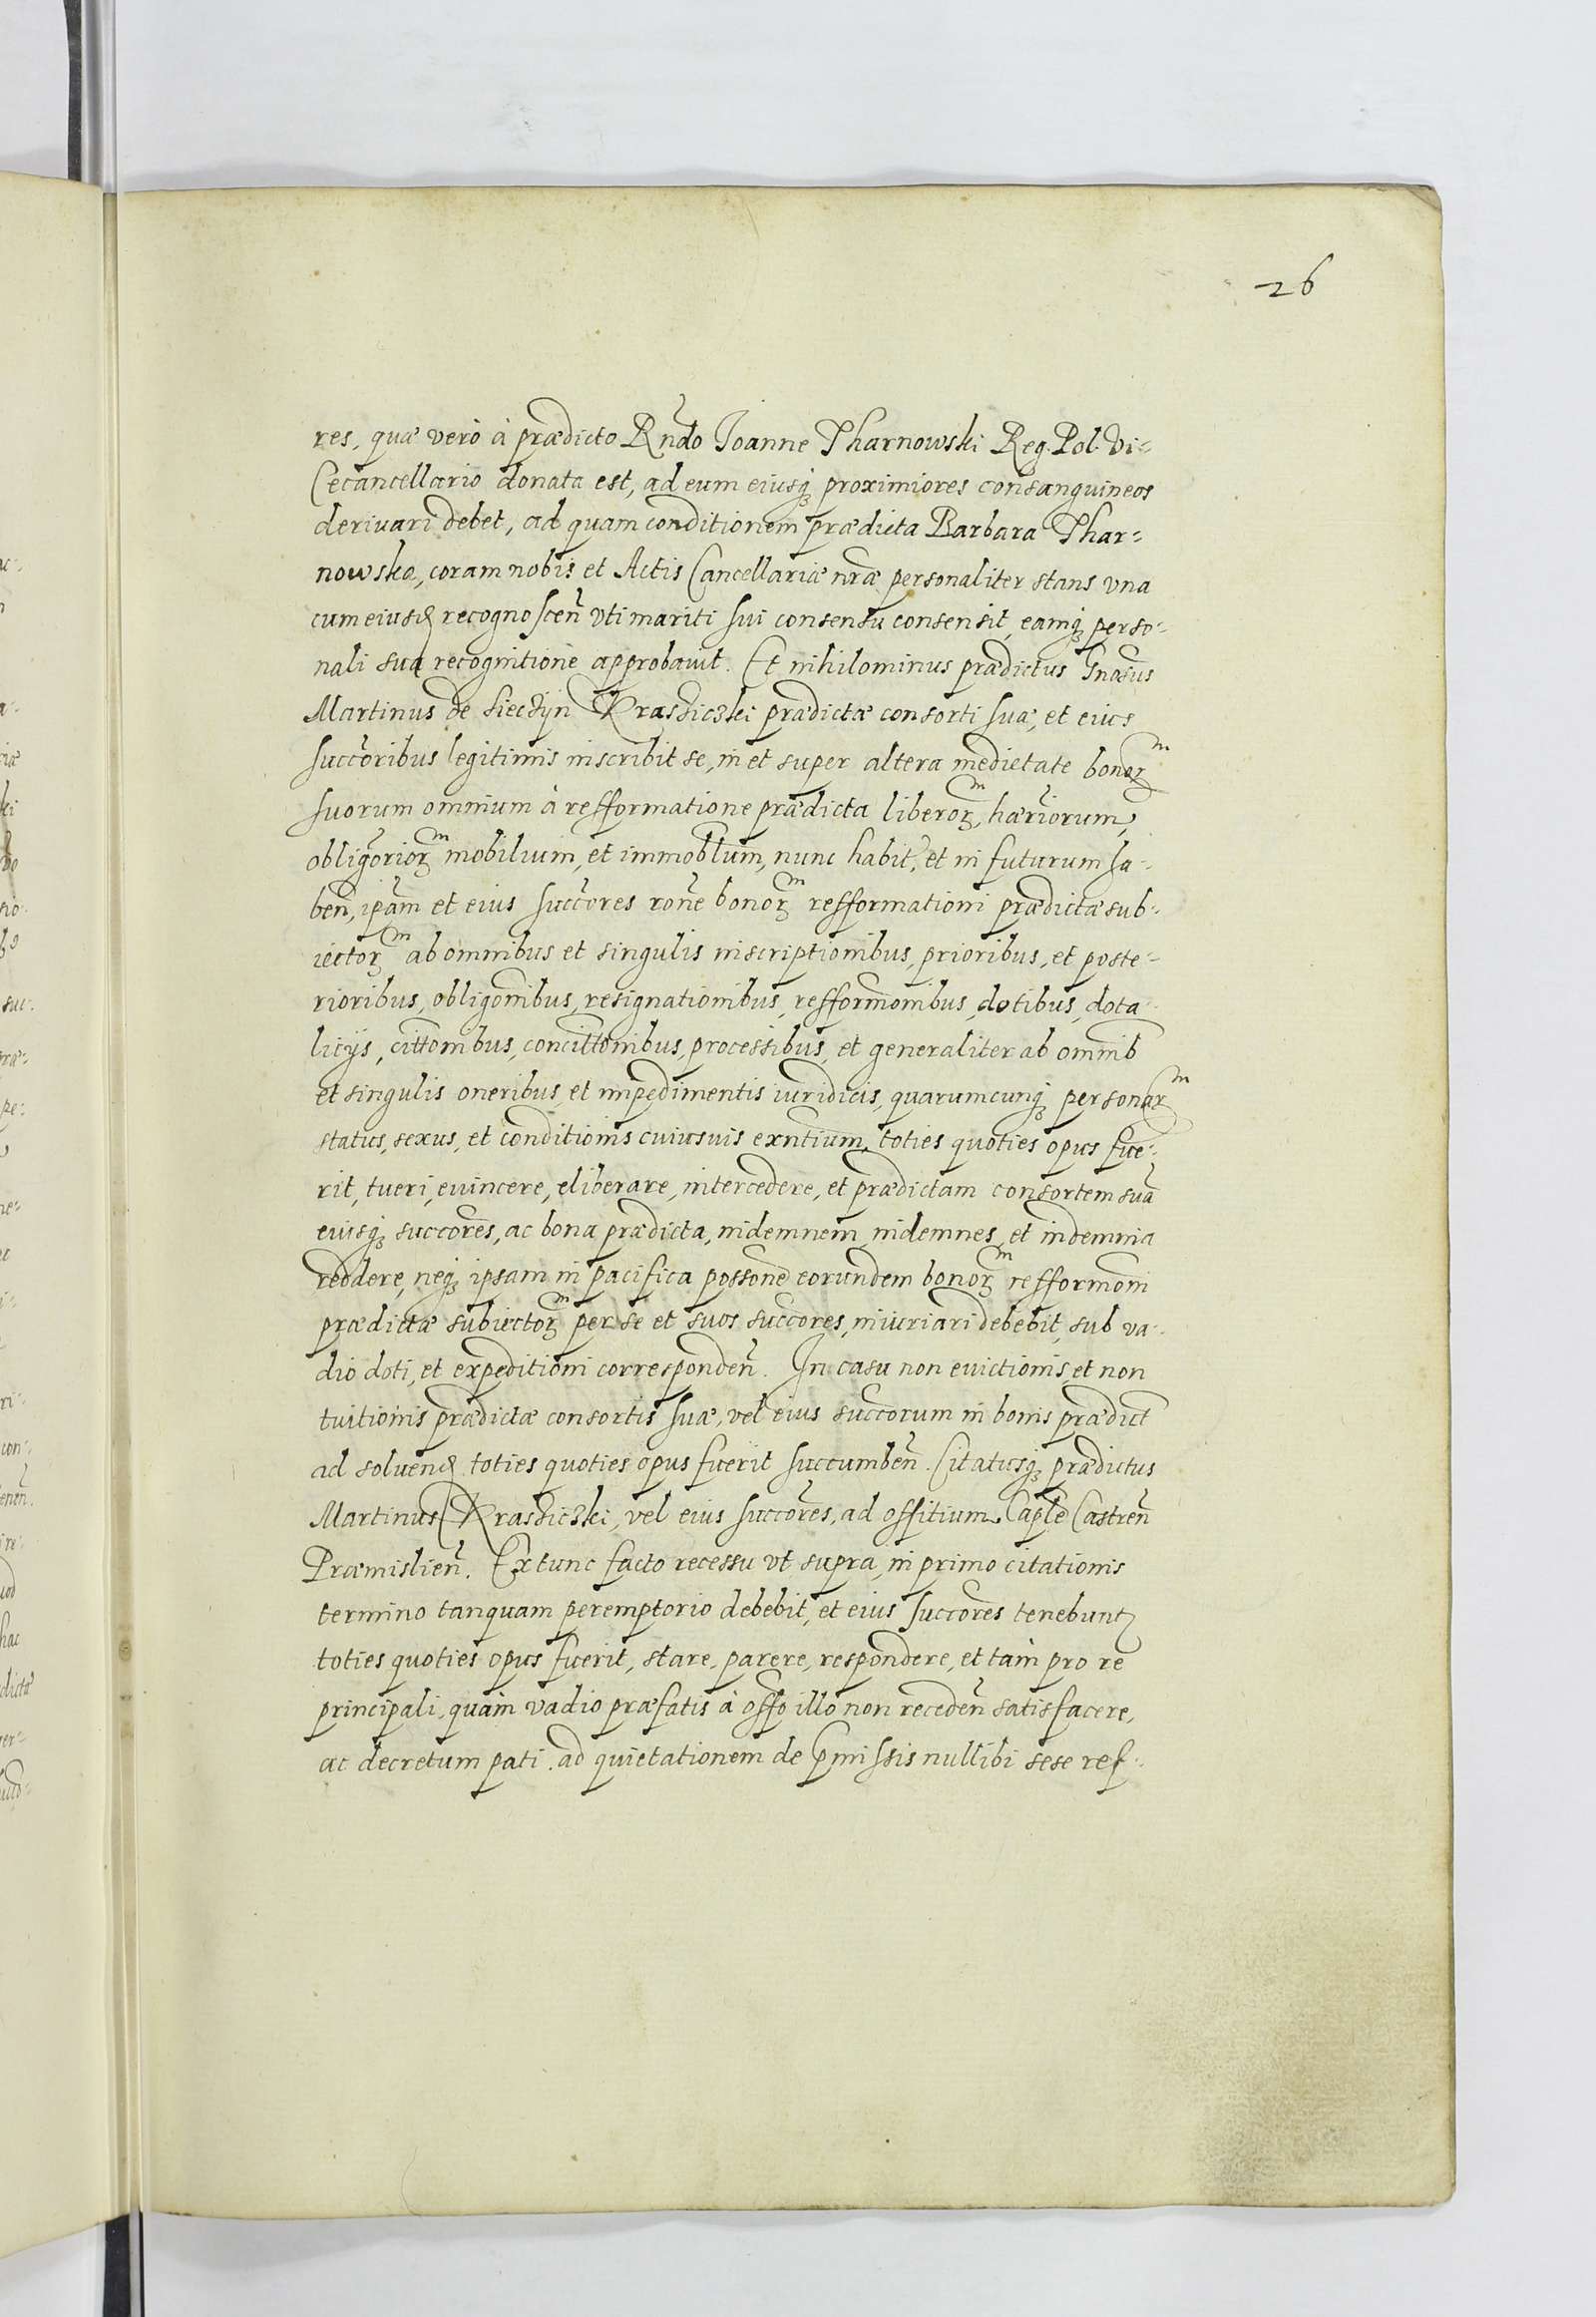 26
res, quæ verò à prædicto Rndo Ioanne Tharnowski Reg. Pol. Vi-
cecancellario donata est, ad eum eiusq; proximiores consanguineos
deriuari debet, ad quam conditionem prædicta Barbara Thar-
nowska, coram nobis et Actis Cancellariæ nræ personaliter stans vna
cum eiusd recognoscen vti mariti sui consensu consensit, eamq; perso-
nali sua recognitione approbauit. Et nihilominus prædictus Gnosus
Martinus de Siecżyn Krasżicżki prædictæ consorti suæ, et eius
succoribus legitimis inscribit se, in et super altera medietate bonorm
suorum omnium à refformatione prædicta liberorm, hæriorum,
obligoriorm mobilium, et immoblum, nunc habit, et in futurum ha-
ben, ipam et eius succores rone bonorm refformationi prædictæ sub-
iectorm ab omnibus et singulis inscriptionibus, prioribus, et poste-
rioribus, obligonibus, resignationibus, refformonibus, dotibus, dota-
licijs, cittonibus, concittonibus, processibus, et generaliter ab omnib
et singulis oneribus, et impedimentis iuridicis, quarumcunq; personarm
status, sexus, et conditionis cuiusuis exntium, toties quoties opus fue-
rit, tueri, euincere, eliberare, intercedere, et prædictam consortem sua
eiusq; succores, ac bona prædicta, indemnem, indemnes, et indemnia
reddere, neq; ipsam in pacifica possone eorundem bonorm refformoni
prædictæ subiectorm per se et suos succores, iniuriari debebit, sub va-
dio doti, et expeditioni corresponden. In casu non euictionis, et non
tuitionis prædictæ consortis suæ, vel eius succorum in bonis prædict
ad soluend toties quoties opus fuerit succumben. Citatusq; prædictus
Martinus Krasżicżki, vel eius succores, ad offitium Caple Castren
Præmislien. Ex tunc facto recessu vt supra, in primo citationis
termino tanquam peremptorio debebit, et eius succores tenebunt
toties quoties opus fuerit, stare, parere, respondere, et tàm pro re
principali, quàm vadio præfatis à offo illo non receden satisfacere,
ac decretum pati. ad quietationem de pmissis nullibi sese ref-